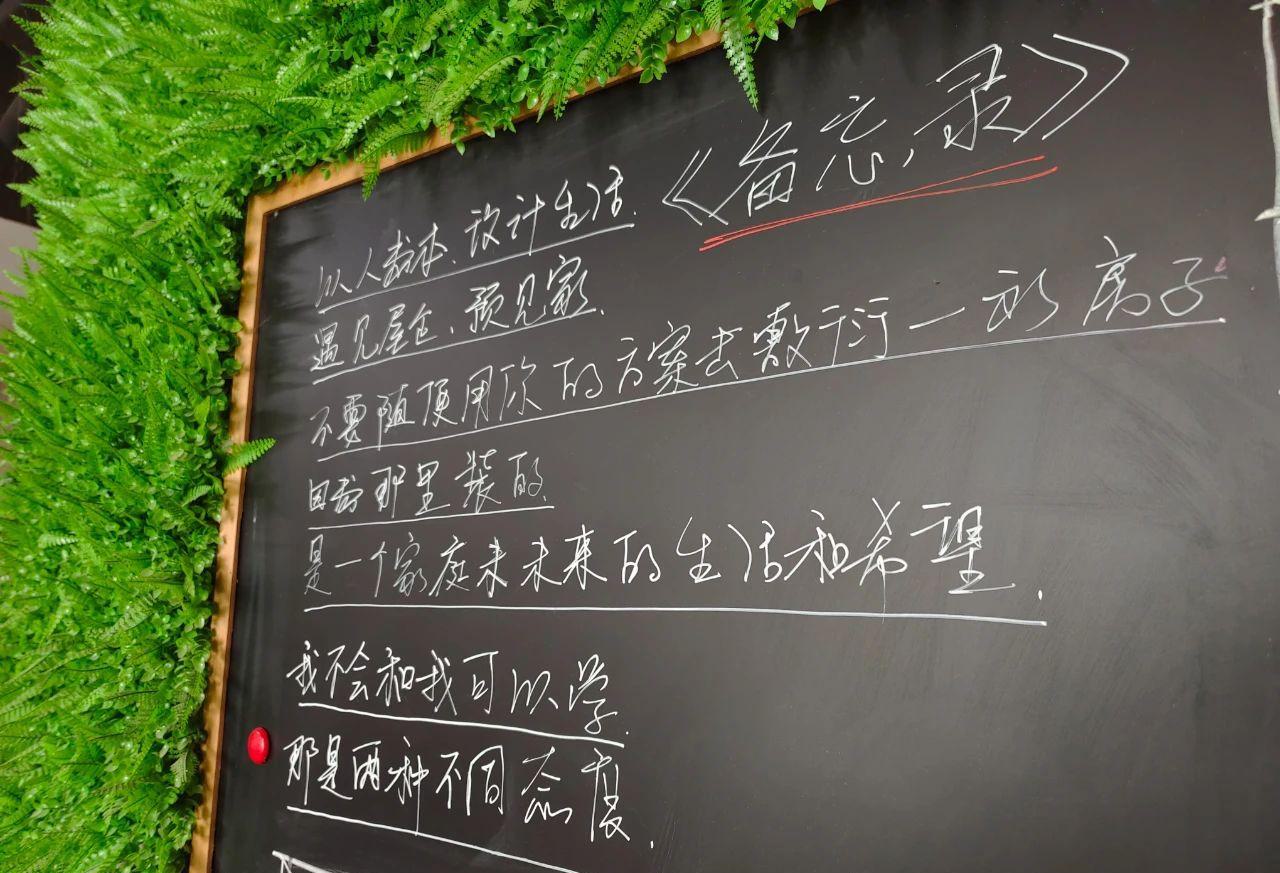 《备忘录》
以人為本、设计生活.
遇见屋企、预见家.
不要随便用你的方案去敷衍一所房子
因為那里装的
是一个家庭未未来的生活和希望.
我不会和我可以学.
那是两种不同态度.